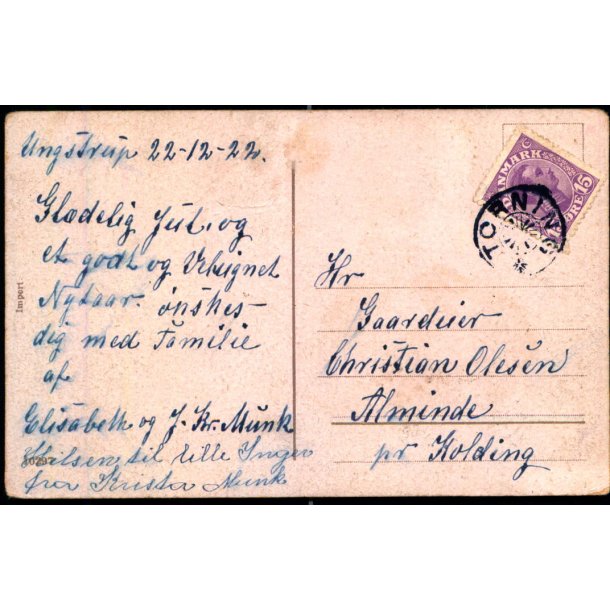 Ungstrup 22-12-22.
Glædelig Jul. og
et godt og Velsignet
Nytaar. ønskes-
dig med Familie
af
Elisabeth og J. Kr. Munk
Hilsen til lille Inger
fra Krista Munk
Impert
DANMARK
15 ØRE
TORNING
Hr
Gaardeier
Christian Olesen
Alminde
pr Kolding